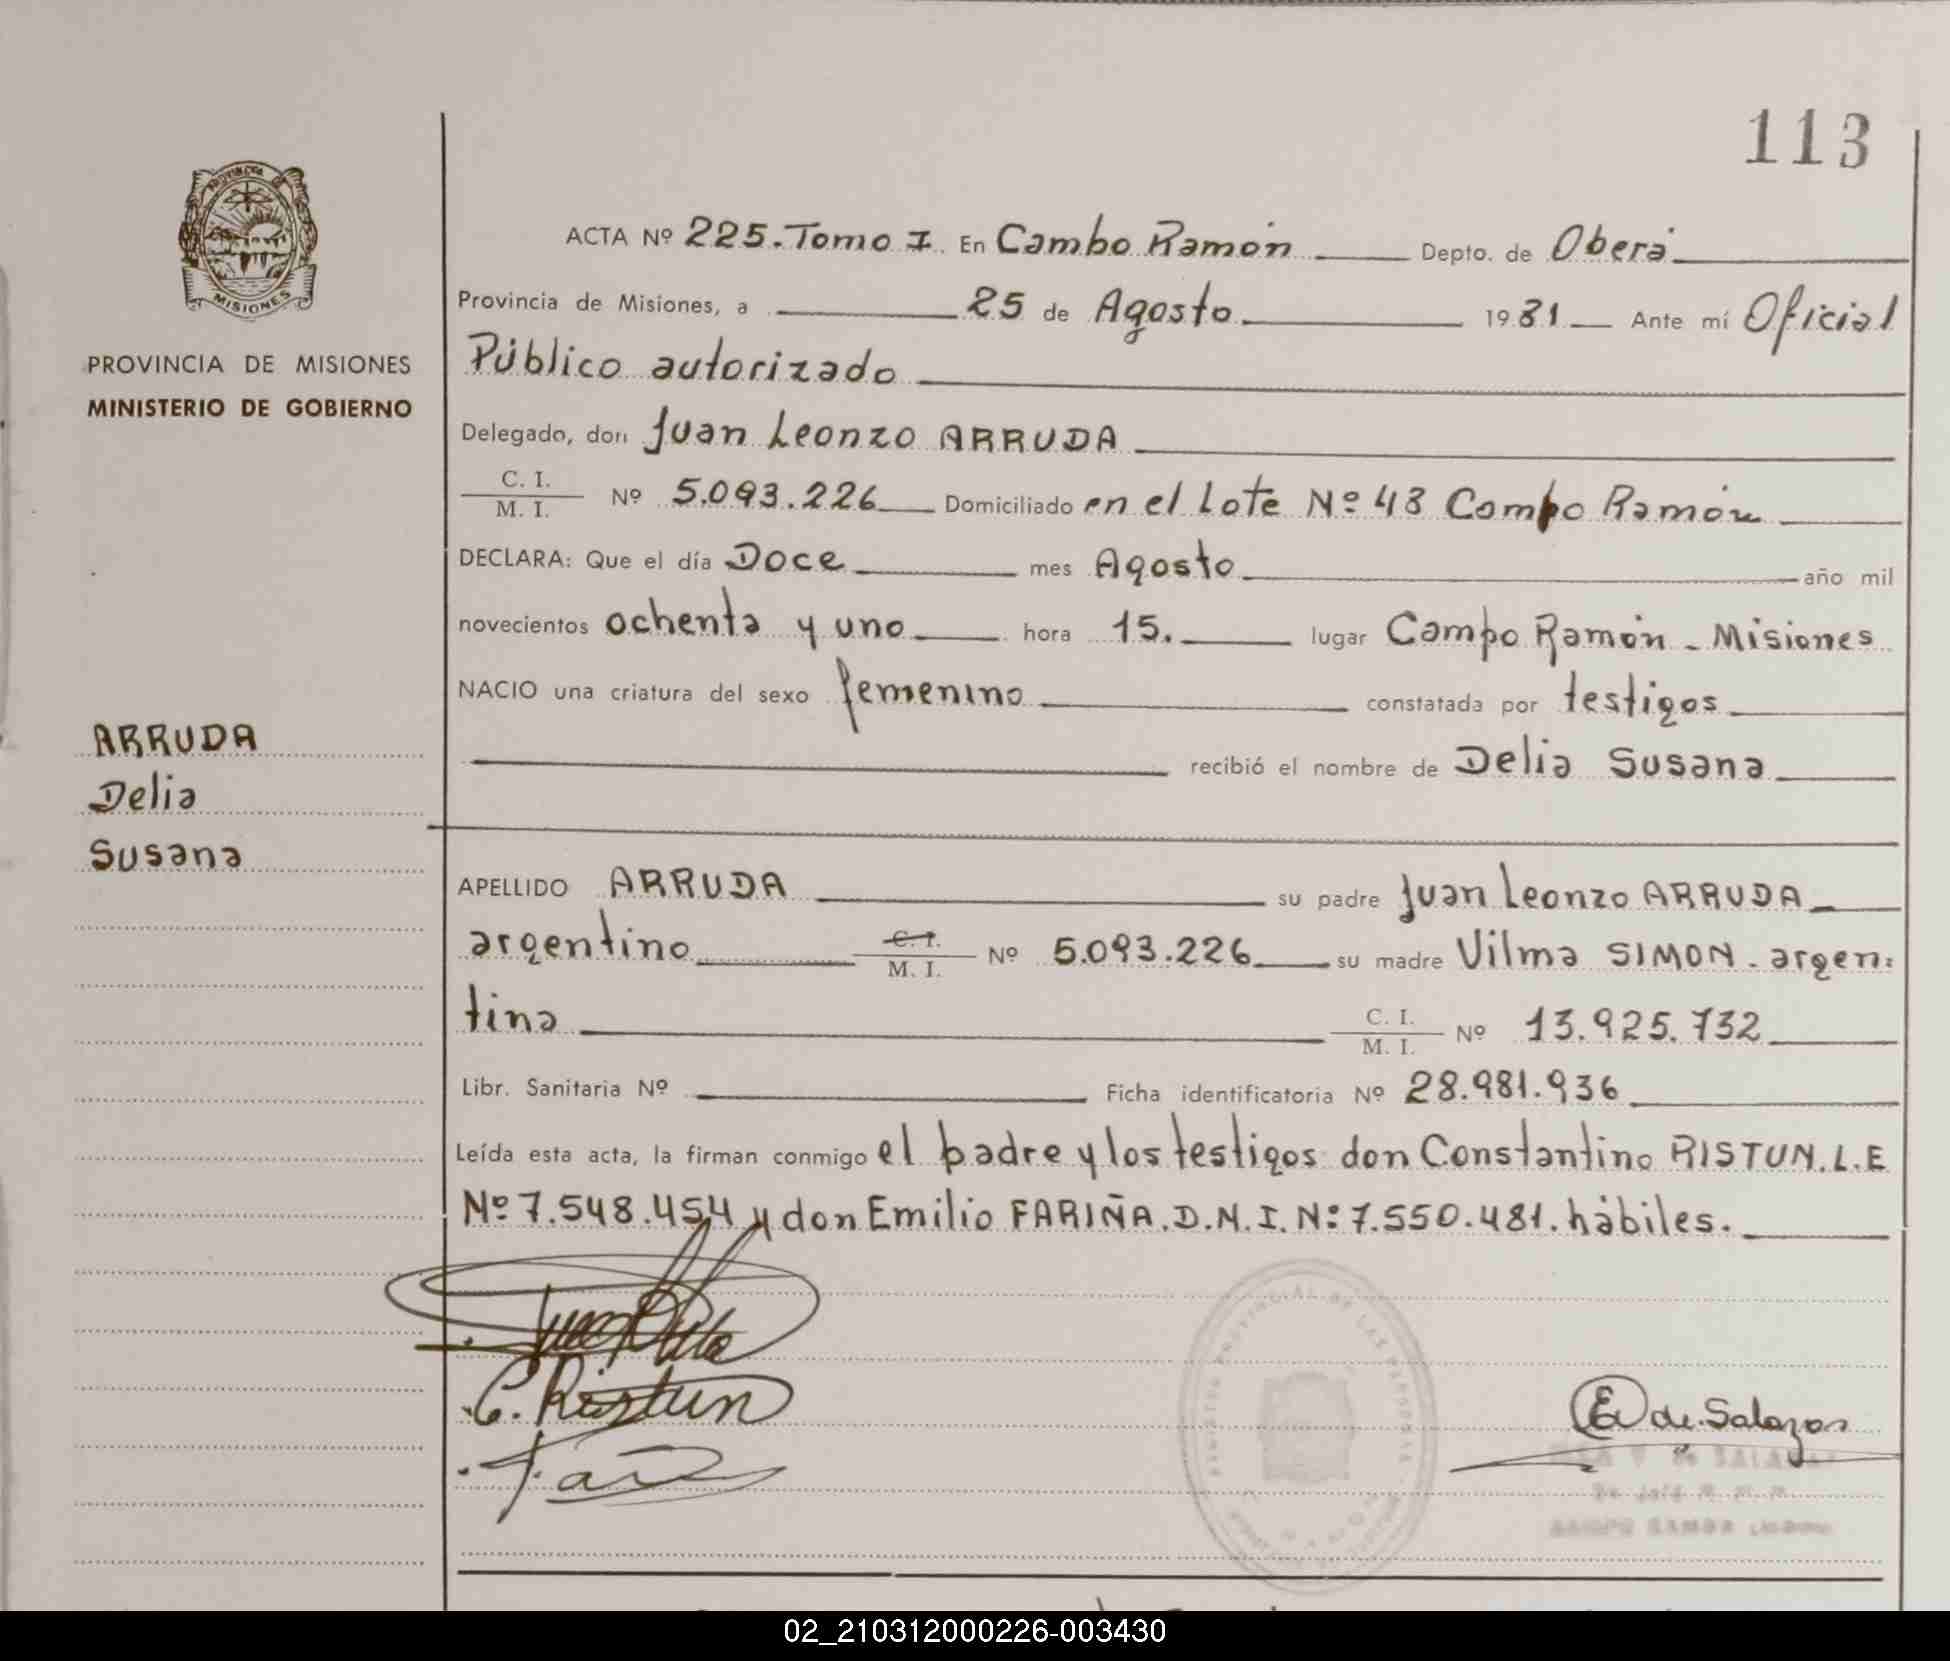 113
PROVINCIA DE MISIONES
MISIONES
PROVINCIA DE MISIONES
MINISTERIO DE GOBIERNO
ARRUDA
Delia
Susana
ACTA Nº 225. Tomo I. En Campo Ramón Depto. de Oberá
Provincia de Misiones, a 25 de Agosto 1981 Ante mí Oficial
Público autorizado
Delegado, don Juan Leonzo ARRUDA
C. I. / M. I. Nº 5.093.226 Domiciliado en el Lote Nº 48 Campo Ramón
DECLARA: Que el día Doce mes Agosto año mil
novecientos ochenta y uno hora 15. lugar Campo Ramón - Misiones
NACIO una criatura del sexo femenino constatada por testigos
recibió el nombre de Delia Susana
APELLIDO ARRUDA su padre Juan Leonzo ARRUDA
argentino C. I. / M. I. Nº 5.093.226 su madre Vilma SIMON - argen:
tina C. I. / M. I. Nº 13.925.732
Libr. Sanitaria Nº Ficha identificatoria Nº 28.981.936
Leída esta acta, la firman conmigo el padre y los testigos don Constantino RISTUN. L.E
Nº 7.548.454 y don Emilio FARIÑA. D.N.I. Nº 7.550.481. hábiles.
C. Ristun
E de Salazar
02_210312000226-003430